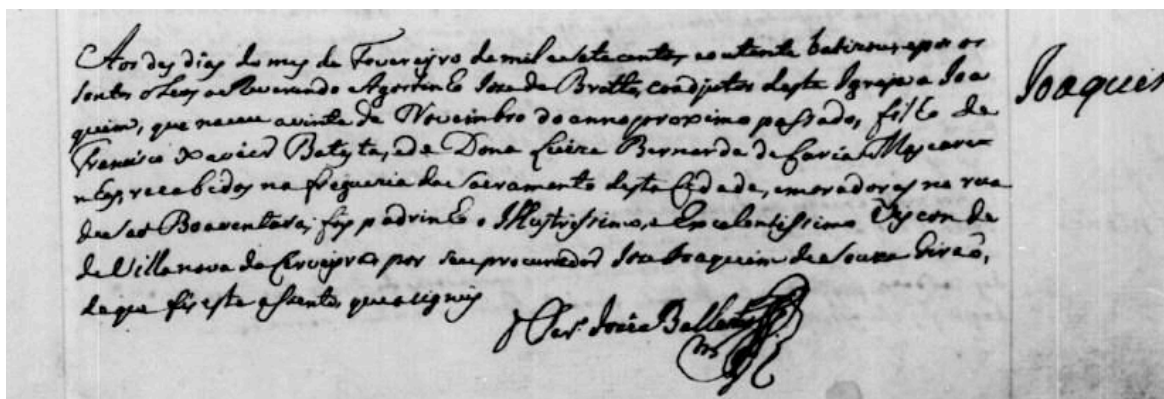 Aos des dias do mes de Fevereyro de mil e setecentos e outenta batizou, e pos os
santos oleos o Reverendo Agostinho Joze de Britto, coadjutor desta Igreja a Joa
quim, que naceu a vinte de Novembro do anno proximo passado, filho de
Francisco Xavier Batista, e de Dona Luiza Bernarda de Faria Mascare=
nhas, recebidos na freguezia do Sacramento desta Cidade, e moradores na rua
de Sao Boaventura; foy padrinho o Illustrissimo, e Excelentissimo Viscon de
de Villa nova da Cerveyra, por seu procurador Joze Joaquim de Souza Giraõ,
de que fis este asento, que asigney
Joaquim